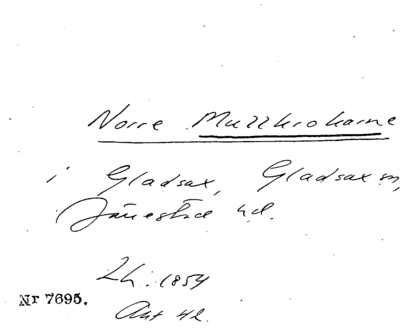 Norre Mullkrokarne
i Gladsax, Gladsax sn,
Järrestad hd.
Lh. 1854
Nr 7695.
Akt 42.